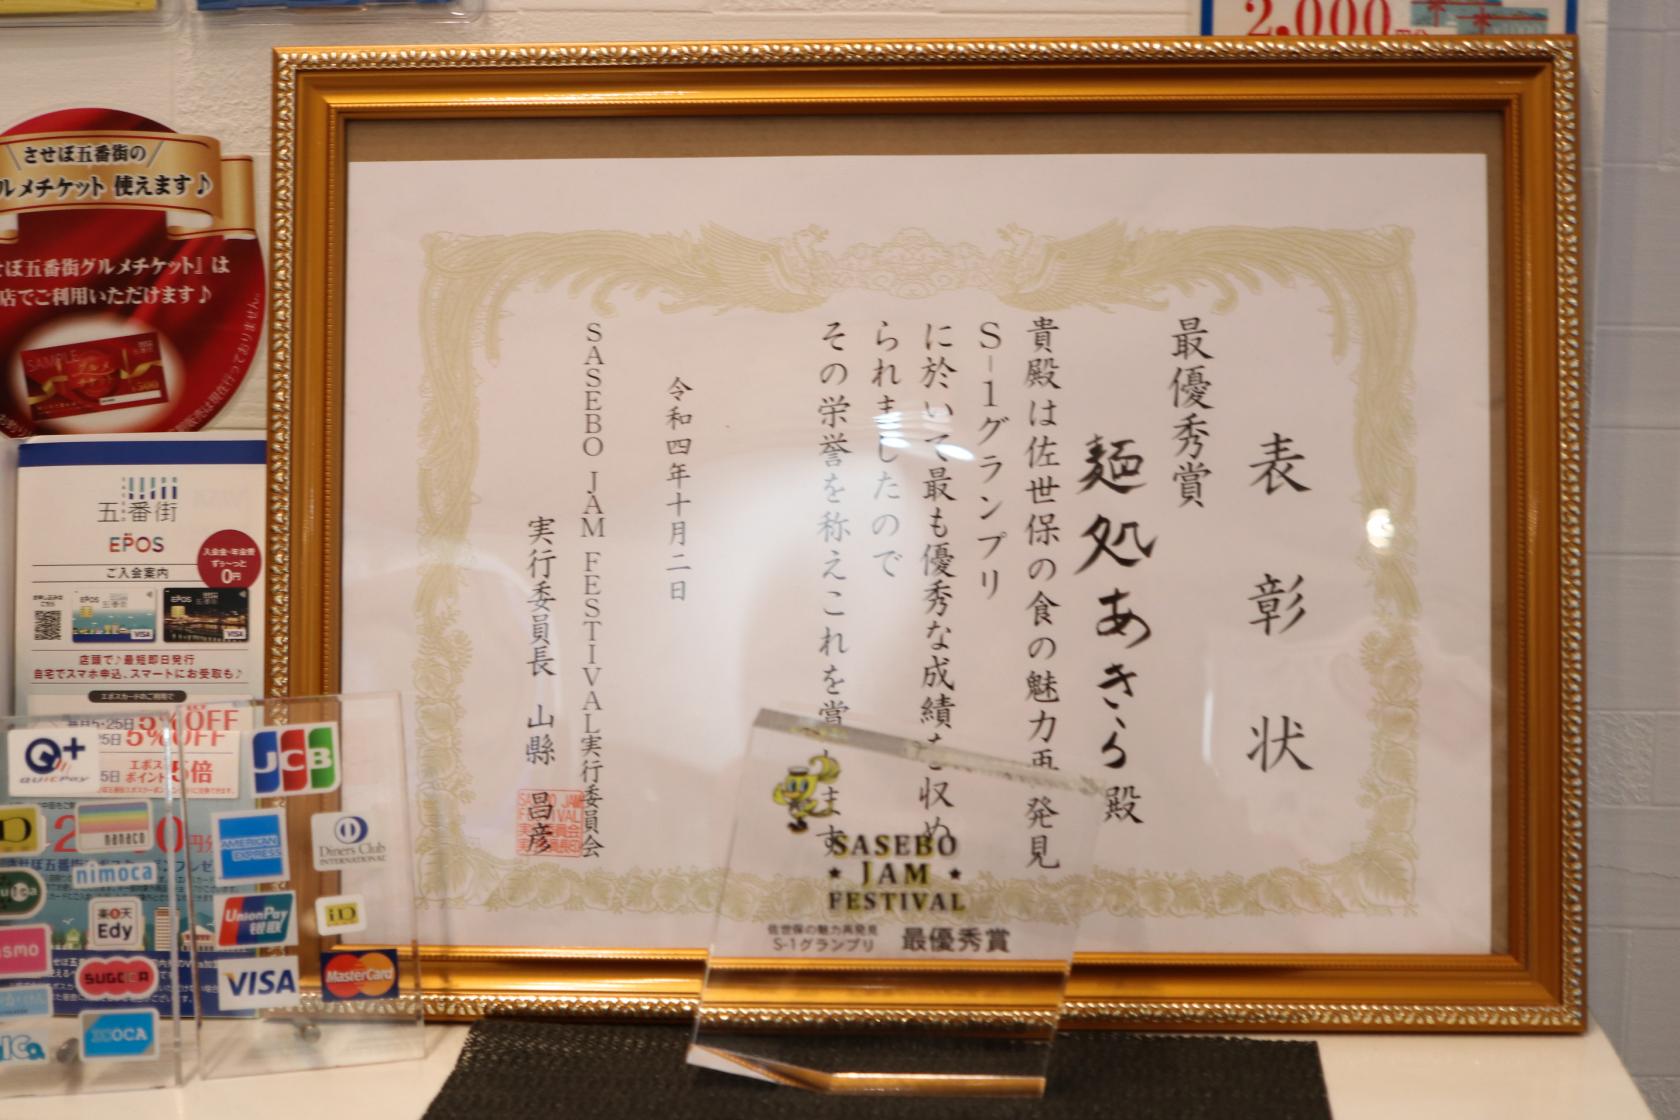 2,000円分
させぼ五番街の
ルメチケット 使えます♪
せぼ五番街グルメチケット』は
店でご利用いただけます♪
SAMPLE
グルメ
チケット
¥500
五番街
EPOS
ご入会案内
入会金・年会費
ずぅ〜っと
0円
EPOS
VISA
EPOS
VISA
店頭で♪最短即日発行
自宅でスマホ申込、スマートにお受取も♪
エポスカードのご利用で
5%OFF
エポス
ポイント5倍
QUICPay
JCB
nanaco
AMERICAN
EXPRESS
Diners Club
INTERNATIONAL
nimoca
楽天
Edy
UnionPay
银联
iD
SUGOCA
VISA
MasterCard
ICOCA
表彰状
最優秀賞
麺処あきら殿
貴殿は佐世保の食の魅力再発見
S-1グランプリ
に於いて最も優秀な成績を収め
られましたので
その栄誉を称えこれを賞します
令和四年十月二日
SASEBO JAM FESTIVAL実行委員会
実行委員長 山縣 昌彦
SASEBO
JAM
FESTIVAL
佐世保の魅力再発見
S-1グランプリ 最優秀賞